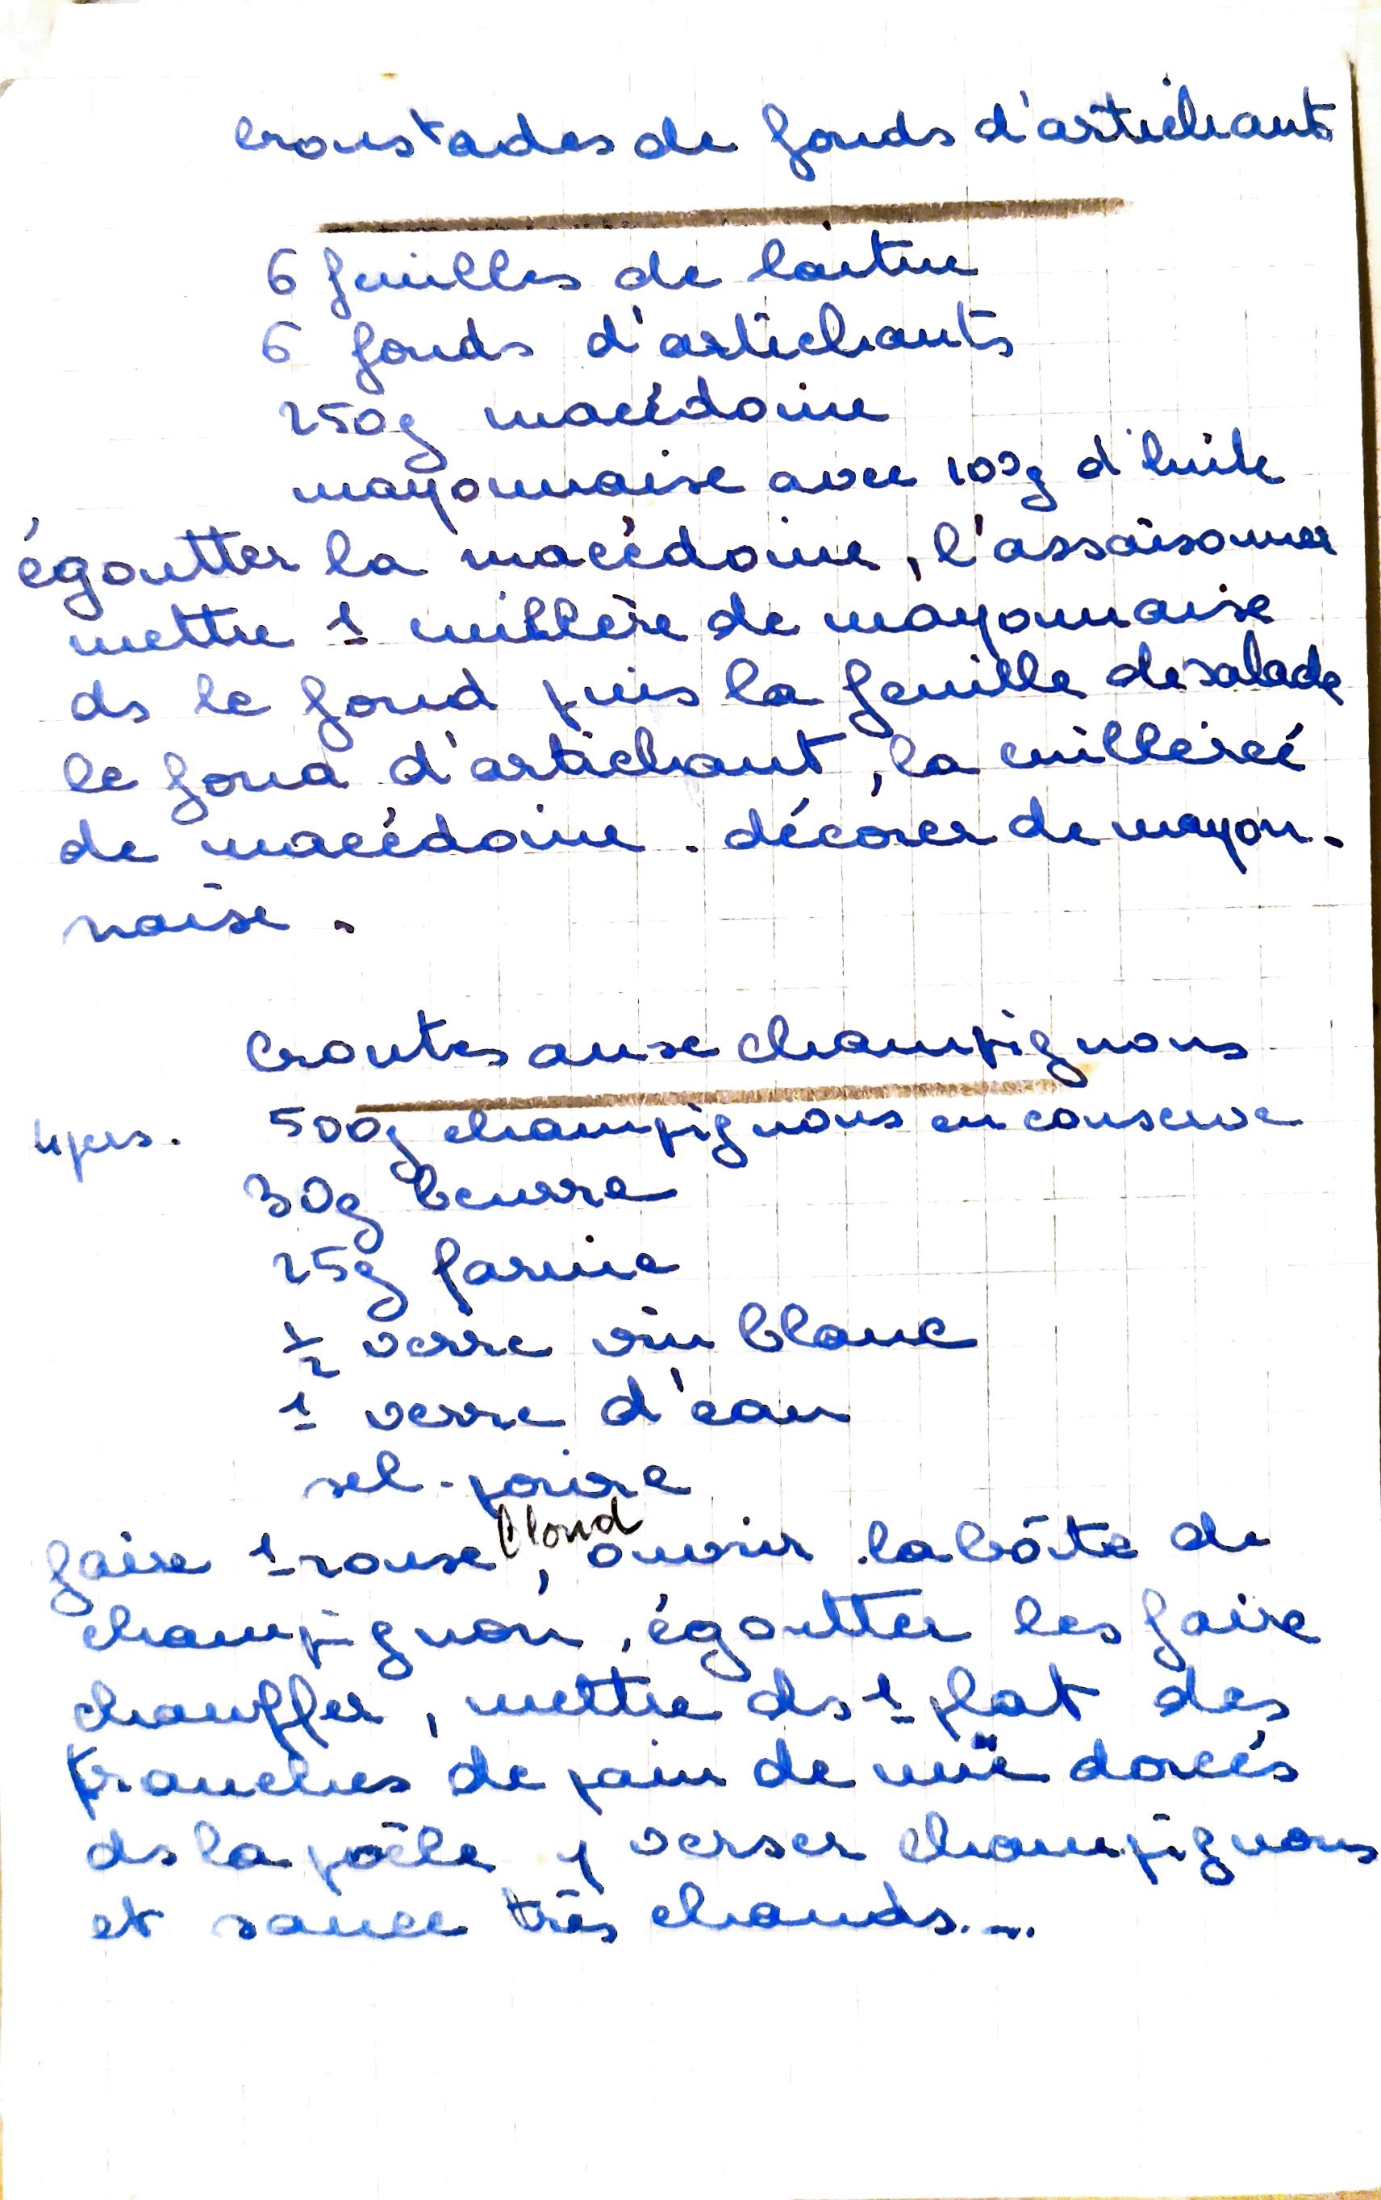 croustades de fonds d'artichauts
6 feuilles de laitue
6 fonds d'artichauts
250g macédoine
mayonnaise avec 100g d'huile
égoutter la macédoine, l'assaisonner
mettre 1 cuillère de mayonnaise
ds le fond puis la feuille de salade
le fond d'artichaut, la cuillereé
de macédoine. décorer de mayon-
naise.
Croutes aux champignons
4 pers. 500g champignons en conserve
30g beurre
25g farine
1/2 verre vin blanc
1 verre d'eau
sel - poivre
faire 1 roux blond, ouvrir la boîte de
champignon, égoutter les faire
chauffer, mettre ds 1 plat des
tranches de pain de mie doreés
ds la poêle y verser champignons
et sauce très chauds...